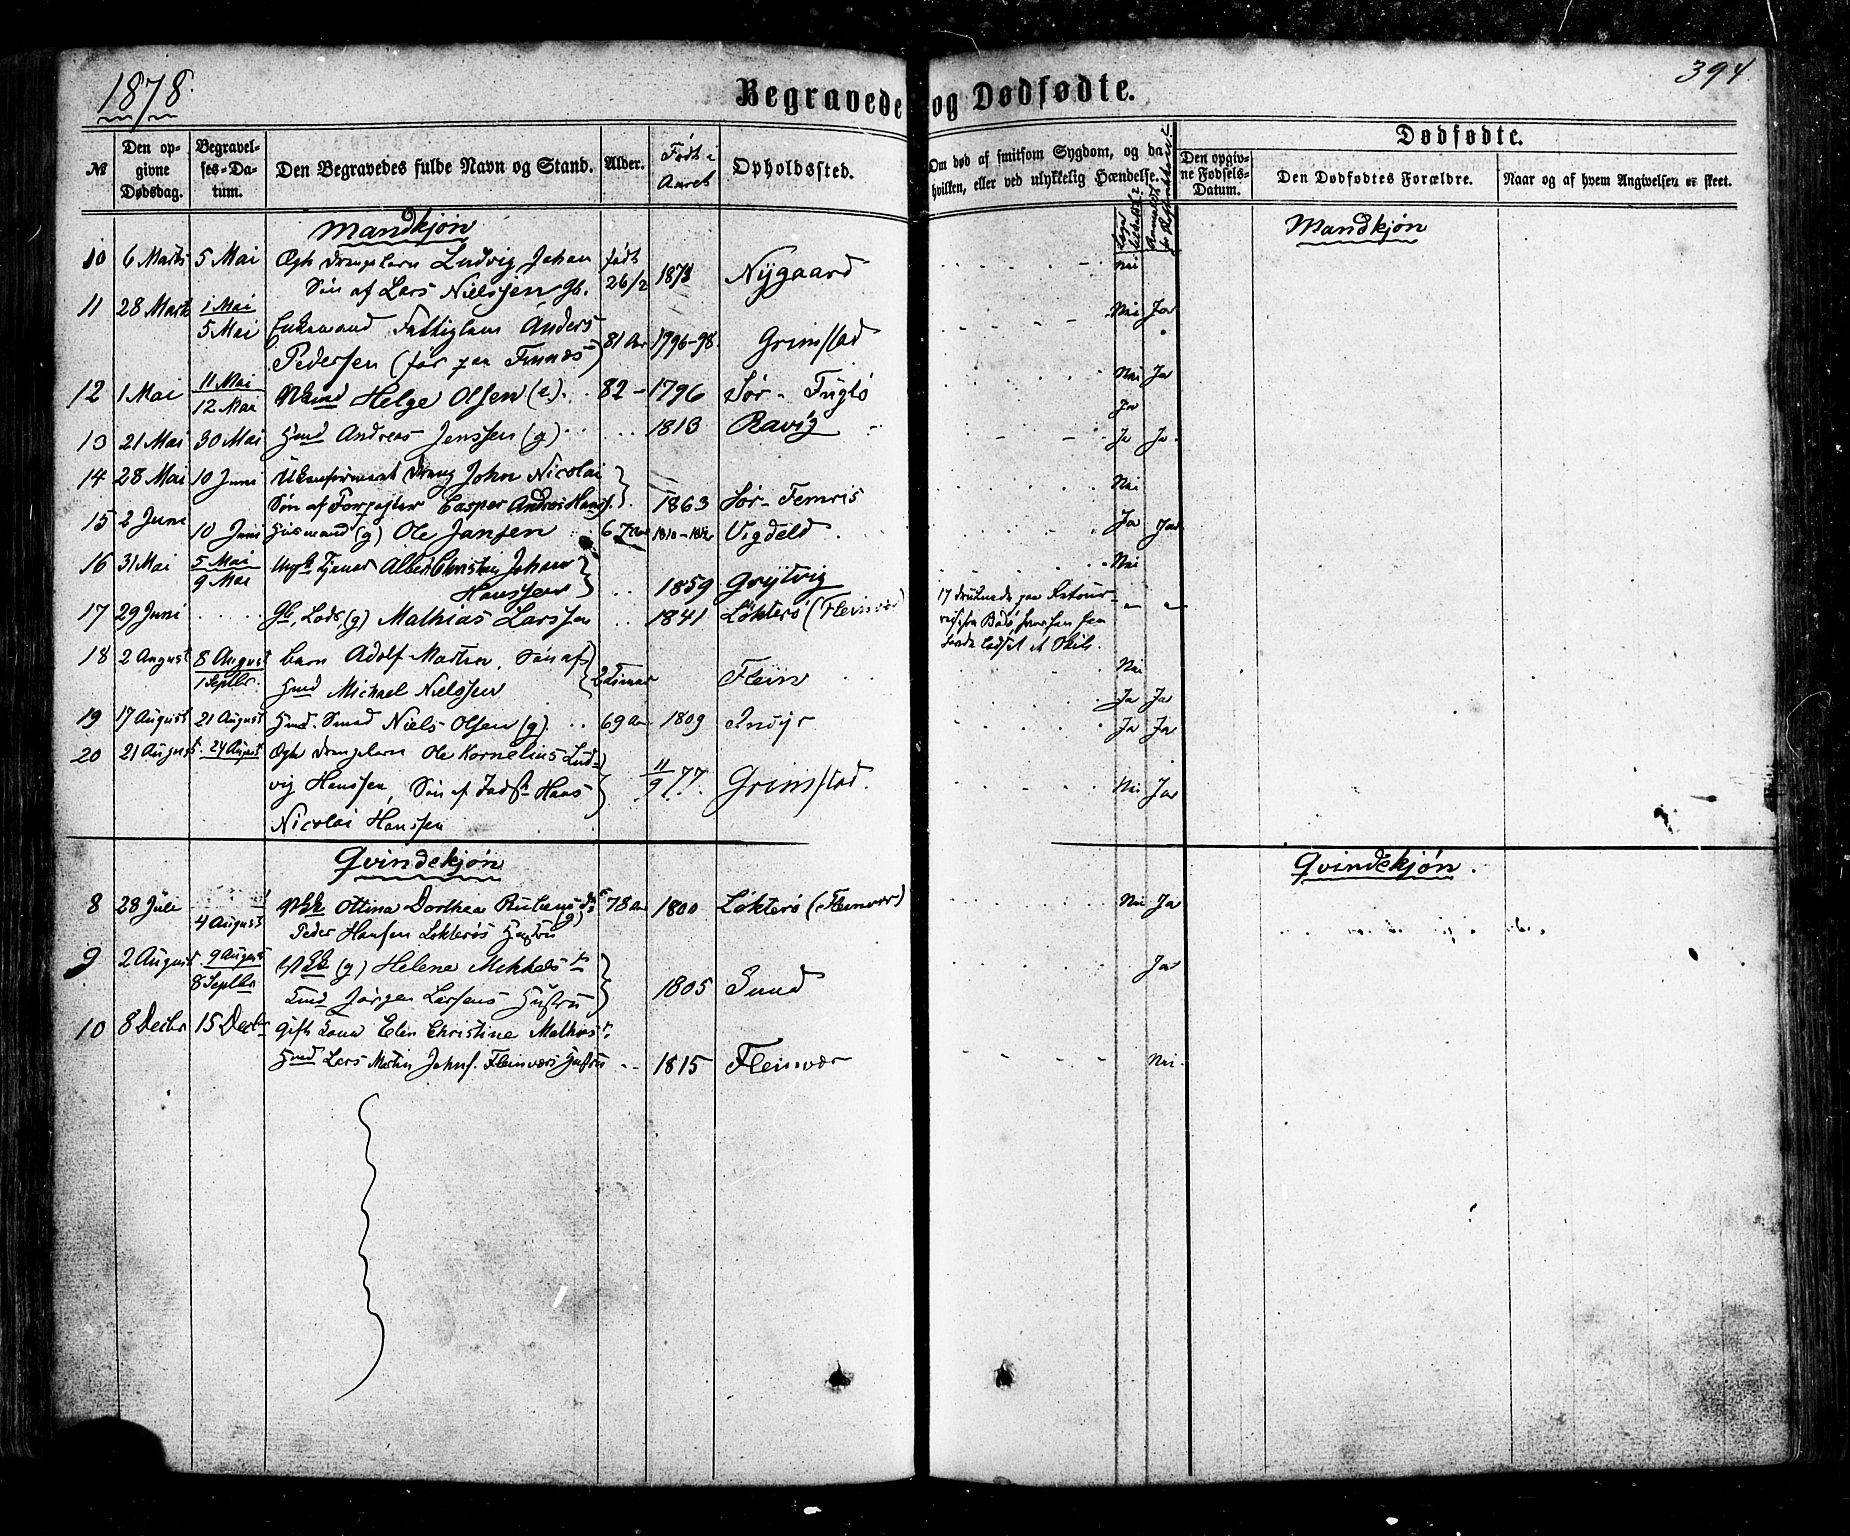 1878.
Begravede og Dødfødte.
394
№
Den opgivne Dødsdag.
Begravelses-Datum.
Den Begravedes fulde Navn og Stand.
Alder.
Født i Aaret
Opholdssted.
Om død af smitsom Sygdom, og da hvilken, eller ved ulykkelig Hændelse.
Dødfødte.
Den opgivne Fødsels-Datum.
Den Dødfødtes Forældre.
Naar og af hvem Angivelsen er skeet.
Mandkjøn
Mandkjøn
10 6 Marts 5 Mai Ægte Drengebarn Ludvig Johan født
Søn af Lars Nielssen Gb. 26/2 1878 Nygaard Nei
11 28 Marts 1 Mai
5 Mai Enkemand Fattiglem Anders
Pedersen (før paa Finnæs) 81 Aar 1796-98 Grimstad Nei Ja
12 1 Mai 11 Mai
12 Mai Helge Olsen (e). 82 1796 Sør-Fuglø Nei Ja
Ja
13 21 Mai 30 Mai Hmd Andreas Jenssen (g) 1813 Ravig Ja Ja
14 28 Mai 10 Juni Ukonfirmeret Dreng John Nicolai
Søn af Forpagter Casper Andreas Hanss. 1863 Sør-Femris Nei
15 2 Juni 10 Juni Huusmand (g) Ole Jansen 67 Aar Vigdeld Ja Ja
16 31 Mai 5 Mai
9 Mai Ungk Tjener Albert Christian Johan
Hanssen 1859 Grytvig Nei
17 29 Juni Gb, Lods, (g) Mathias Larssen 1841 Løkterø (Fleinvær) 17 druknede paa Retour-
reisen fra Bodø hvorhen han
havde lodset et Skib.
18 2 August 8 August
1 Septbr. barn Adolf Martin, Søn af
Hmd Michael Nielssen 2 Timer Flein Nei
Ja Ja
19 17 August 21 August Hmd. Smed Niels Olsen (g). 69 Aar 1809 Indyr Ja Ja
20 21 August 24 August Ægte Drengebarn Ole Kornelius Lud-
vig Hanssen, Søn af Indst Hans
Nicolai Hanssen 11/9 77. Grimstad. Nei Ja
Qvindekjøn
Qvindekjøn.
8 28 Juli 4 August Ottina Dorthea (g) 78 Aar 1800 Løkterø (Fleinvær) Nei Ja
Peder Hansen Løkterøs Hustru
9 2 August 9 August
8 Septbr (g) Helene Mikkels
Hmd Jørgen Larsens Hustru 1805 Sund Ja
10 8 Decbr 15 Decbr Gift Kone Elen Christine Mathias
Hmd Lars Martin Johns. Fleinværs Hustru 1815 Fleinvær Nei